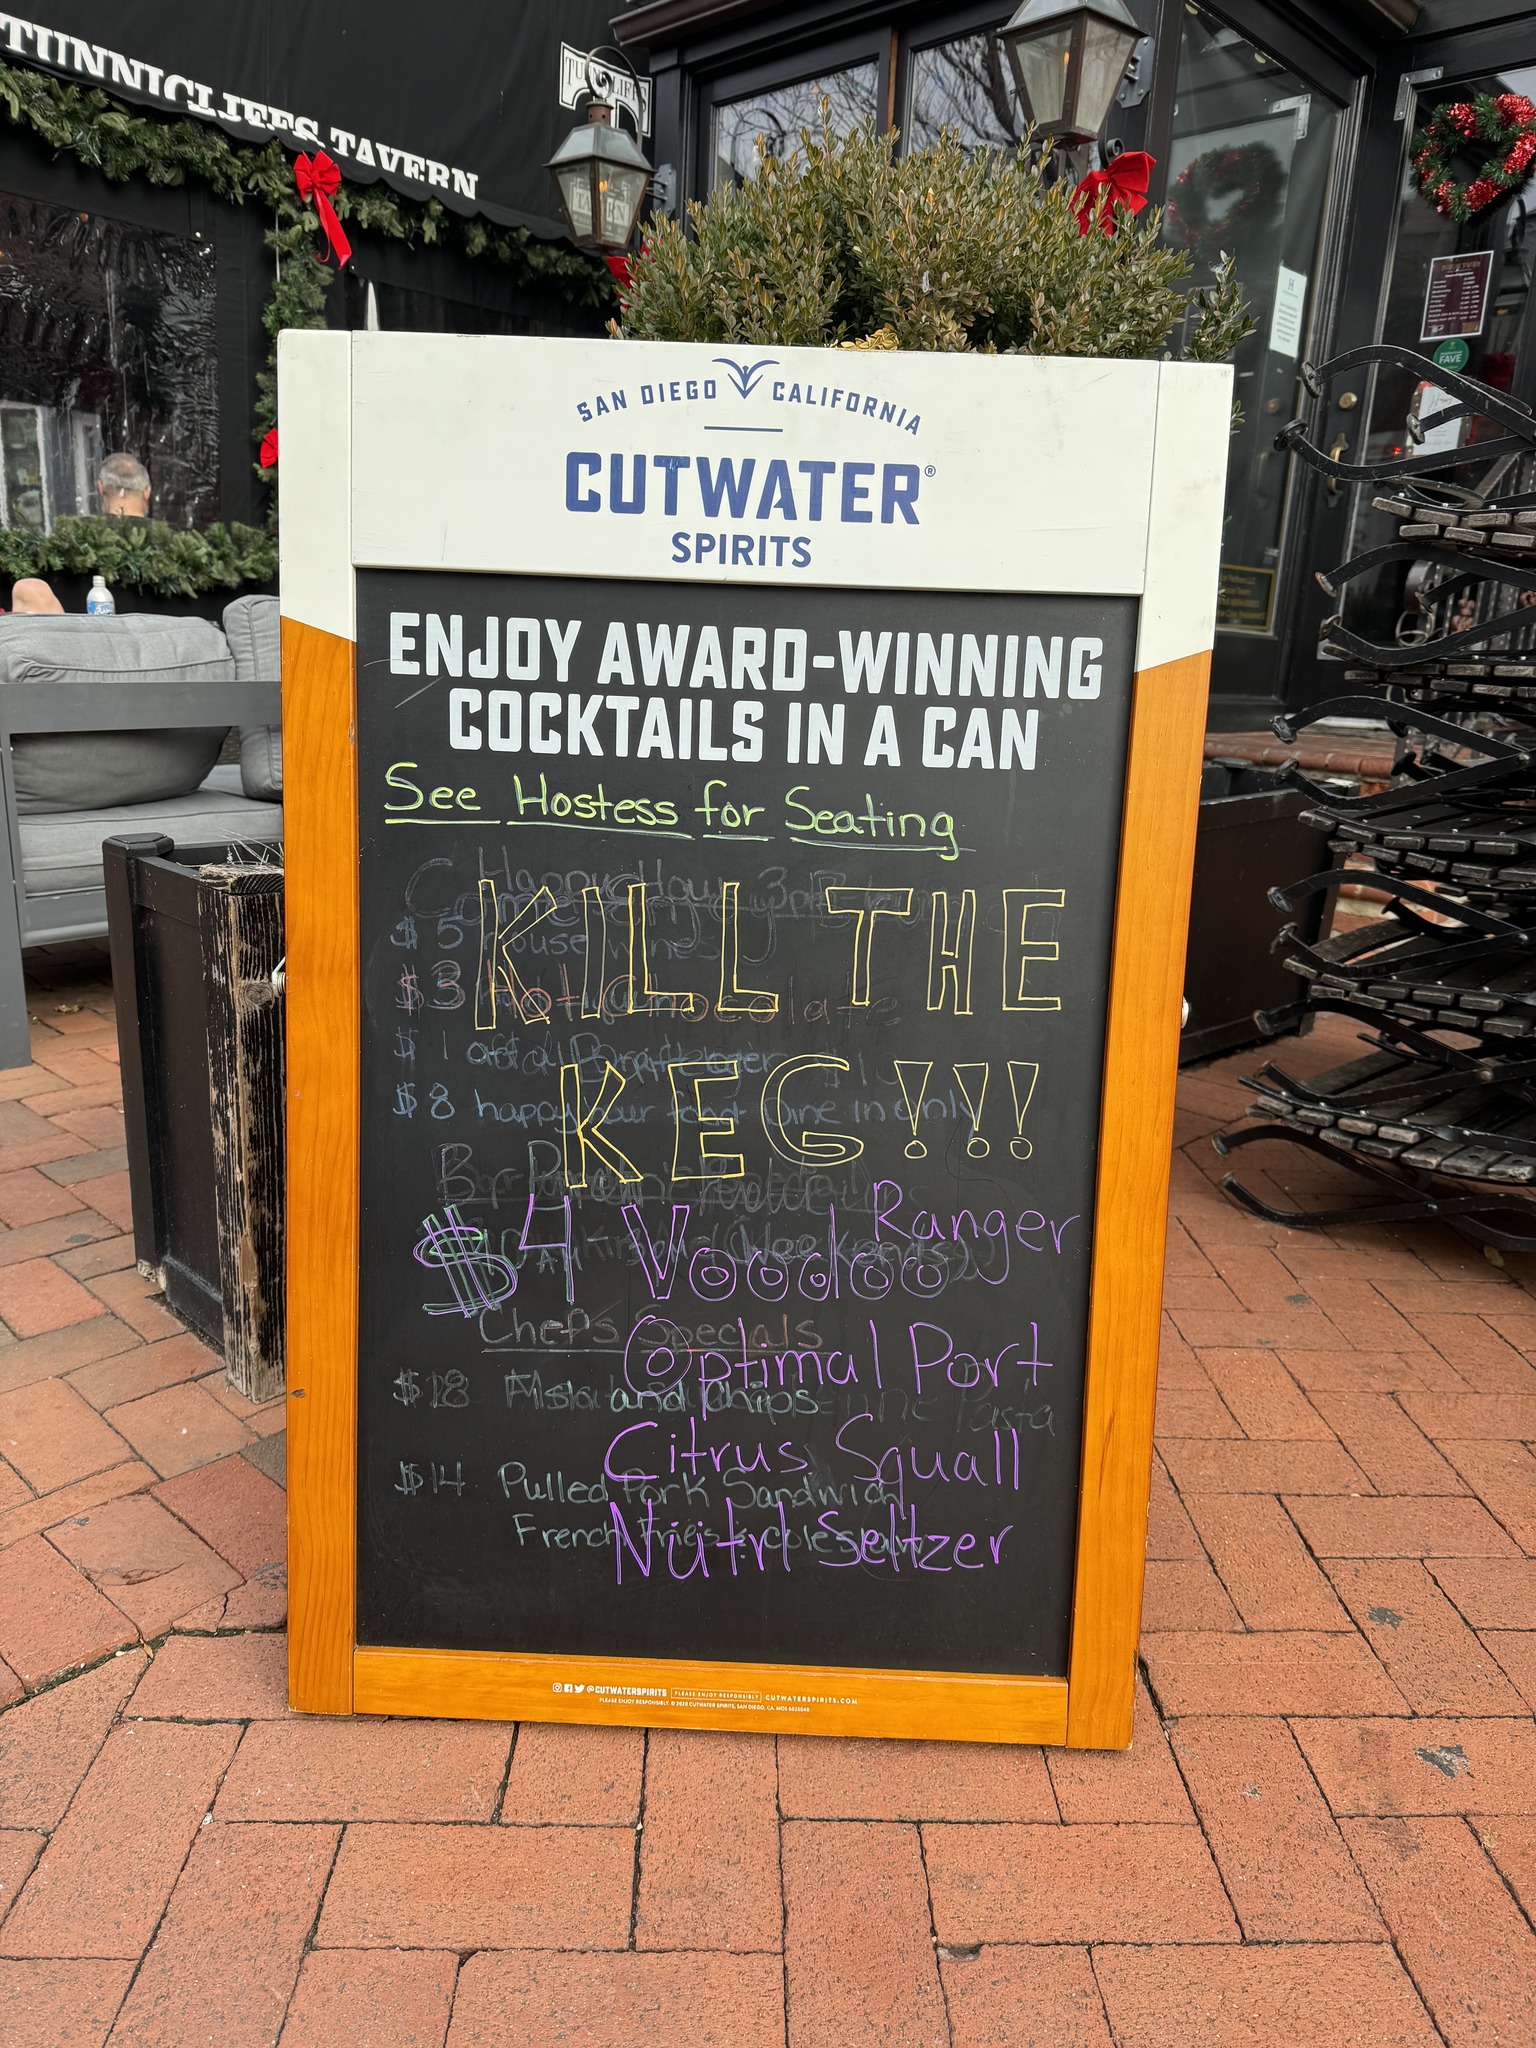 TUNNICLIFFS TAVERN
SAN DIEGO CALIFORNIA
CUTWATER®
SPIRITS
ENJOY AWARD-WINNING
COCKTAILS IN A CAN
See Hostess for Seating
Happy Hour
$5 house wines
$3 Hot Chocolate
KILL THE
$1 off
$8 happy hour food Dine in only
KEG!!!
$4 - Voodoo Ranger
Chef's Specials
Optimal Port
$18 and Chips Pasta
Citrus Squall
$14 Pulled Pork Sandwich
French Fries & coleslaw
Nütrl Seltzer
@CUTWATERSPIRITS PLEASE ENJOY RESPONSIBLY CUTWATERSPIRITS.COM
PLEASE ENJOY RESPONSIBLY. © 2020 CUTWATER SPIRITS, SAN DIEGO, CA.
FAVE